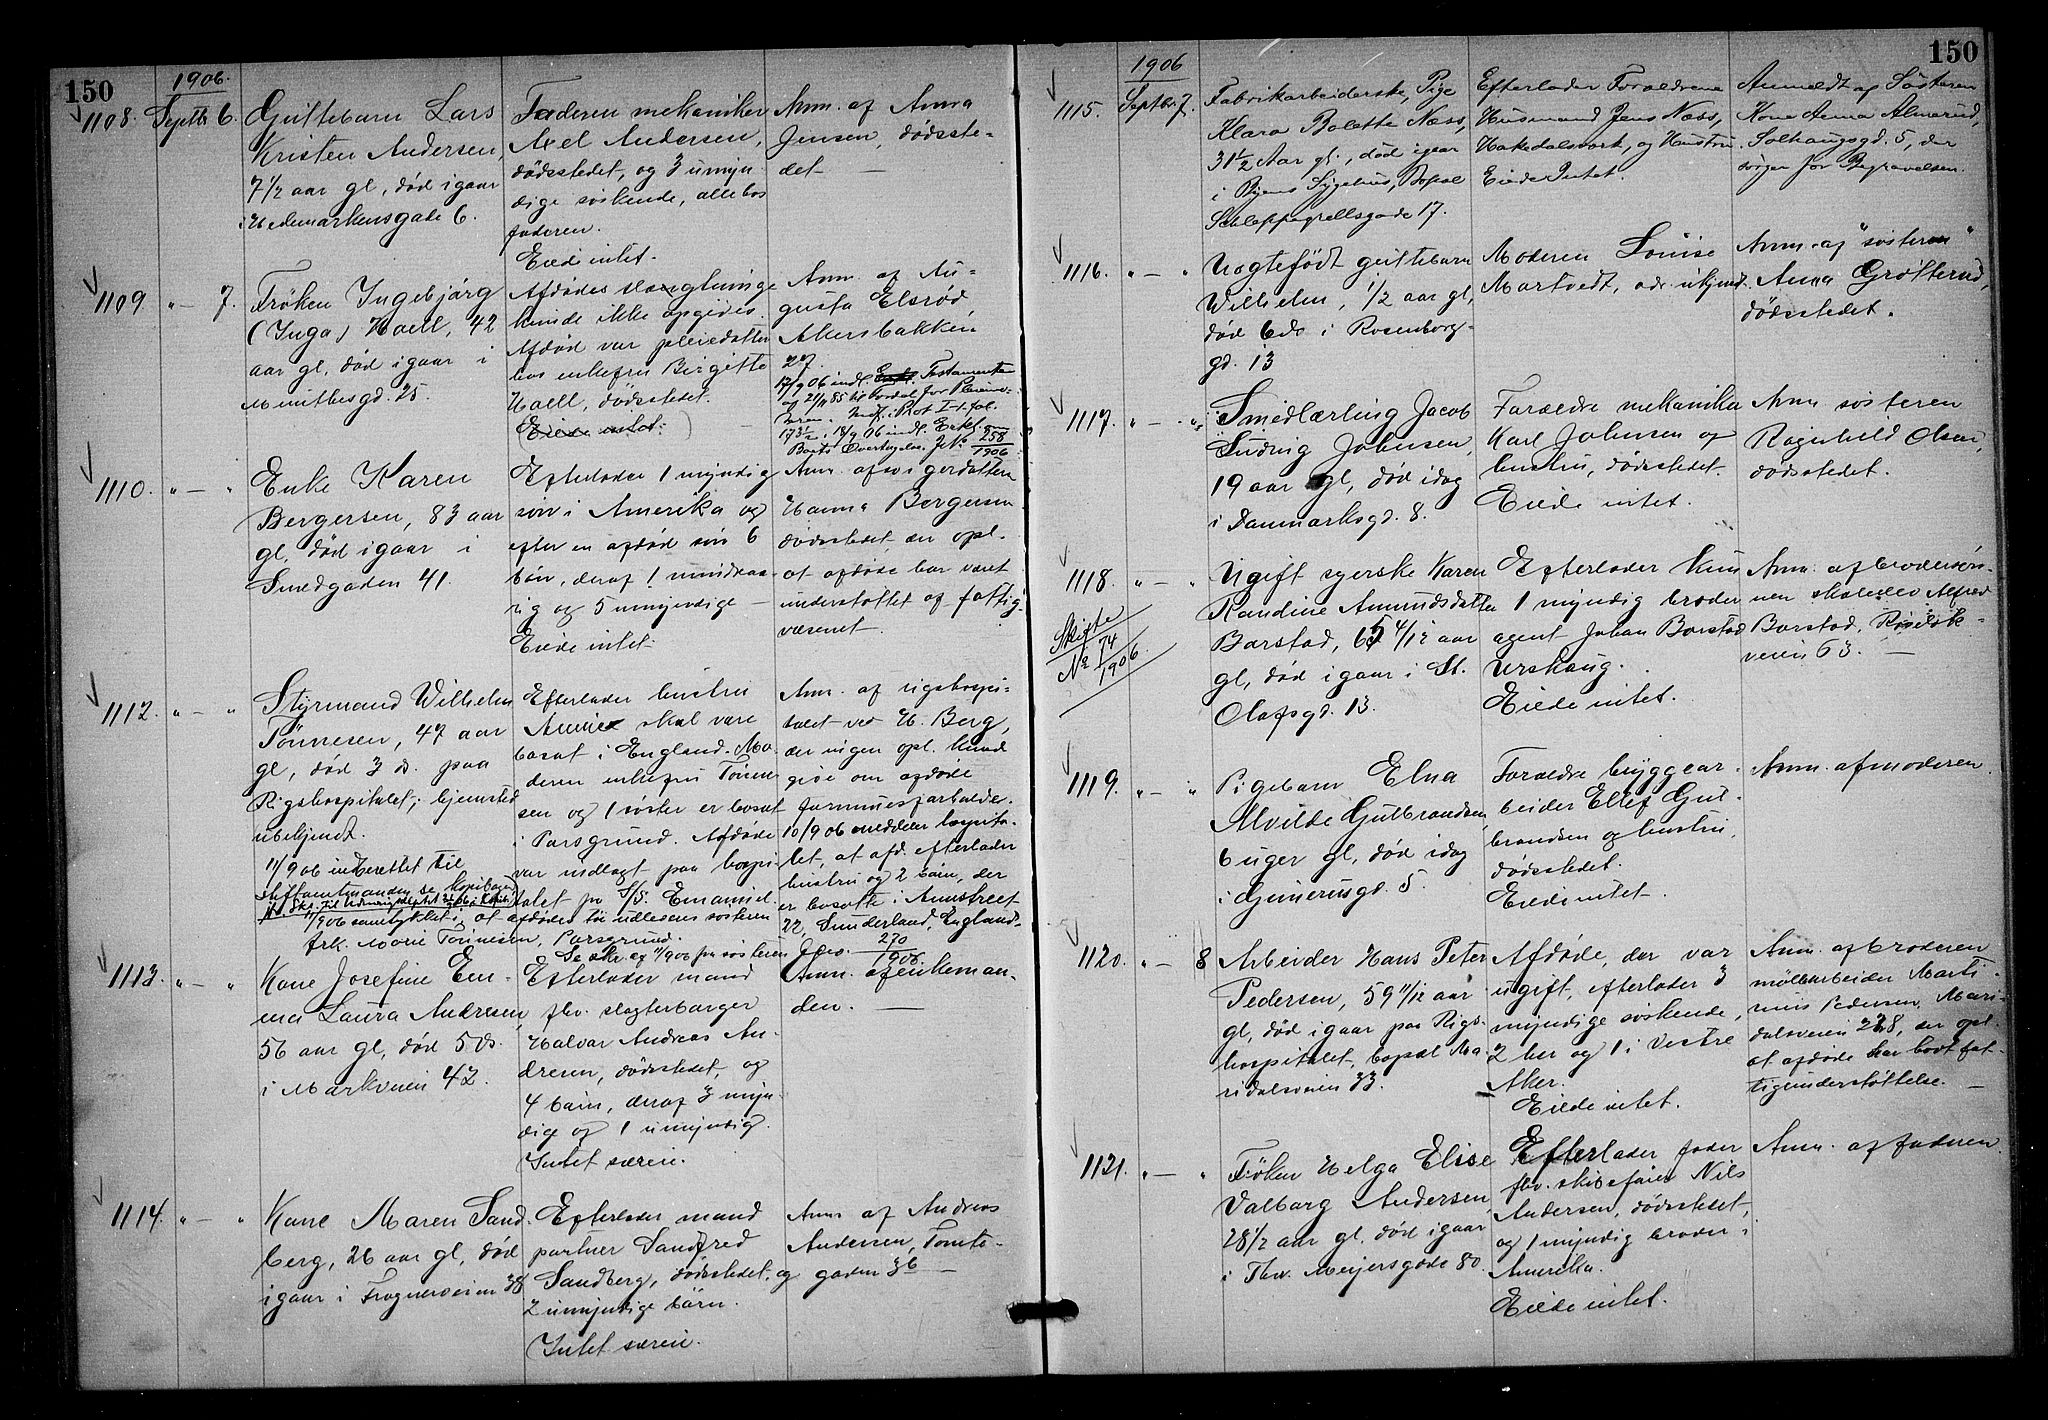 150
1906.
1108. Septbr 6.
Guttebarn Lars
Kristen Andersen,
7 1/2 aar gl, død igaar
i Hedemarkensgade 6.
Faderen mekaniker
Axel Andersen,
dødsstedet, og 3 umyn
dige søskende, alle hos
faderen.
Eiede intet.
Anm. af Anna
Jensen, dødsste-
det —
1109. " 7.
Frøken Ingebjørg
(Inga) Haell, 42
aar gl, død igaar i
Munthesgd. 25.
Afdødes slægtninge
kunde ikke opgives.
Afdød var pleiedatter
hos enkefru Birgitte
Haell, dødsstedet.
Eiede intet.
Anm. af Au-
gusta Elsrød
Akersbakken
27.
17/9 06 indl. Testamente
af 21/11 85 til Fordel for Pleiemo-
deren. Indf. i Prot I fol.
173 18/9 06 indl. Enkef.
Boets Overtagelse. Jr. No 258/1906
1110. " — "
Enke Karen
Bergersen, 83 aar
gl, død igaar i
Smedgaden 41.
Efterlader 1 myndig
søn i Amerika og
efter en afdød søn 6
børn, deraf 1 mindreaa-
rig og 5 umyndige —
Eiede intet.
Anm. af svigerdatteren
Hanna Bergersen
dødsstedet, der opl.
at afdøde har været
understøttet af fattig-
væsenet.
1112. " — "
Styrmand Wilhelm
Tønnesen, 47 aar
gl, død 3 ds. paa
Rigshospitalet, hjemsted
ubekjendt.
11/9 06 indberettet til
stiftamtmanden se kopibogen
11/9 06 samtykket i, at afdødes tøi udleveres søsteren
frk. Marie Tønnesen, Porsgrund.
Efterlader hustru
Annie skal være
bosat i England. Mo-
deren enkefru Tønne
sen og 1 søster er bosat
i Porsgrund. Afdøde
var indlagt paa hospi-
talet fra S/S. Emanuel.
Se skr. af 11/9 06 fra søsteren
Anm. af rigshospi-
talet ved H. Berg,
der ingen opl. kunde
give om afdødes
formuesforholde.
10/9 06 meddeler hospita-
let, at afd. efterlader
hustru og 2 børn, der
er bosatte i Annstreet
22, Sunderland, England.
Jno. 270/1906.
1113. " — "
Kone Josefine Em-
ma Laura Andresen
56 aar gl, død 5 ds.
i Markveien 42.
Efterlader mand
fhv. slagterborger
Halvar Andreas An-
dresen, dødsstedet, og
4 børn, deraf 3 myn-
dige og 1 umyndig.
Intet særeie.
Anm. af enkeman-
den. —
1114. " — "
Kone Maren Sand-
berg, 26 aar gl, død
igaar i Frognerveien 38
Efterlader mand
partner Sandfred
Sandberg, dødsstedet, og
2 umyndige børn.
Intet særeie.
Anm. af Andreas
Andersen, Tomte-
gaden 36 —
150
1906
1115. Septbr 7.
Fabrikarbeiderske, Pige
Klara Bolette Næss,
31 1/2 Aar gl., død igaar
i Byens Sygehus, Bopæl
Schleppegrellsgade 17.
Efterlader Forældrene
Husmand Jens Næss,
Hakedalsverk, og Hustru.
Eiede Intet.
Anmeldt af Søsteren
Kone Anna Almerud,
Solhaugsgd. 5, der
sørger for Begravelsen.
1116. " — "
Uægtefødt guttebarn
Wilhelm, 1/2 aar gl,
død 6 ds i Rosenborg-
gd. 13
Moderen Louise
Martvedt, adr. ukjendt.
Anm. af "søsteren"
Anna Grøtterud,
dødsstedet.
1117. " — "
Smedlærling Jacob
Ludvig Johnsen,
19 aar gl, død idag
i Danmarksgd. 8.
Forældre mekaniker
Karl Johnsen og
hustru, dødsstedet.
Eiede intet.
Anm søsteren
Ragnhild Olsen,
dødsstedet.
1118. " — "
Skifte
No 74/1906.
Ugift syerske Karen
Randine Amundsdatter
Borstad, 65 4/12 aar
gl, død igaar i St.
Olafsgd. 13.
Efterlader kun
1 myndig broder
agent Johan Borstad
Urskoug.
Eiede intet.
Anm. af brodersøn-
nen skoleelev Alfred
Borstad,
veien 63. —
1119. " — "
Pigebarn Elna
Alvilde Gulbrandsen,
6 uger gl, død idag
i Gjetnerusgd. 5.
Forældre bryggear-
beider Ellef Gul-
brandsen og hustru,
dødsstedet.
Eiede intet.
Anm. af moderen.
1120. " — 8
Arbeider Hans Peter
Pedersen, 59 11/12 aar
gl, død igaar paa Rigs-
hospitalet, bopæl Ma-
ridalsveien 33.
Afdøde, der var
ugift, efterlader 3
myndige søskende,
2 her og 1 i Vestre
Aker.
Eiede intet.
Anm. af broderen
møllearbeider Marti-
nius Pedersen, Mari-
dalsveien 228, der opl.
at afdøde har havt fat-
tigunderstøttelse. —
1121. " — "
Frøken Helga Elise
Valborg Andersen,
28 1/2 aar gl. død igaar
i Thv. Meyersgade 80.
Efterlader fader
fhv. skibsfører Nils
Andersen, dødsstedet,
og 1 myndig broder i
Amerika.
Eiede intet.
Anm. af faderen.